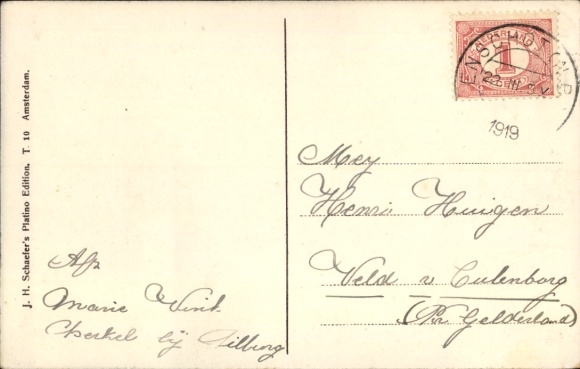 J. H. Schaefer's Platino Edition, T. 10 Amsterdam.
Afz
Marie Vink
bij Tilburg
NEDERLAND
1
ENSCHOT
22
1919
Mej
Henri Huigen
Veld v Culenborg
(Pr Gelderland)